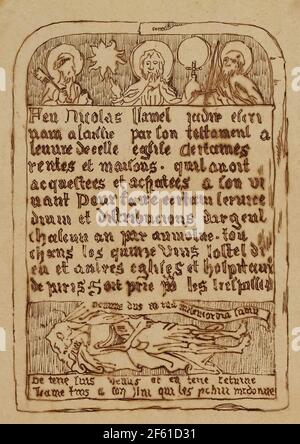 Feu Nicolas flamel jadis escri
uain a laissie par son testament a
leuure de ceste eglise certaines
rentes et maisons . quil auoit
acquestees et achatees a son vi
uant Pour faire certain seruice
diuin et distribucions dargent
chascun an par aumosne . tou
chans les quinze vins lostel di
eu et autres eglises et hospitaux
de paris Soit prie po les trespassez
Domine dus in tua misericordia
De terre suis venus et en terre retorne
Lame rens a toy qui les pechiez
alamy - 2F61D31